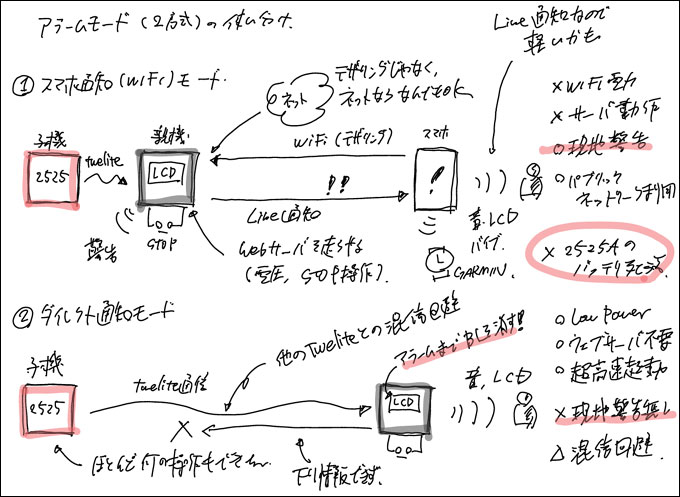 アラームモード (2方式) の使い分け.
① スマホ通知 (WiFi) モード.
Line通知なので
軽いかも
テザリングじゃなく,
ネットならなんでもOK.
ネット
子機
2525
twelite
親機
LCD
STOP
警告
WiFi (テザリング)
!!
Line通知
Webサーバを走らせる
(電圧, STOP操作)
スマホ
!
音, LCD
バイブ.
GARMIN.
× WiFi電力
× サーバ動作
○ 現地警告
○ パブリック
ネットワーク利用
× 2525Aの
バッテリ
② ダイレクト通知モード
子機
2525
twelite通信
他のTweliteとの混信回避
×
ほとんど何の操作もできない.
下り情報
アラームまで
LCD
音, LCD
○ Low Power
○ ウェブサーバ不要
○ 超高速起動
× 現地警告無し
△ 混信回避.